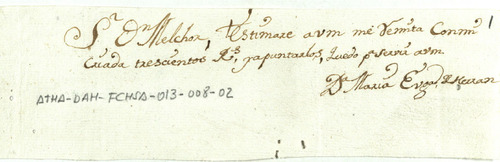 Sr. Dn Melchor, Estimare a vm me Remita Con mi
Criada trescientos Rs. y apuntarlos, quedo pa servir a vm
Da Maria
ATHA-DAH-FCHSA-013-008-02